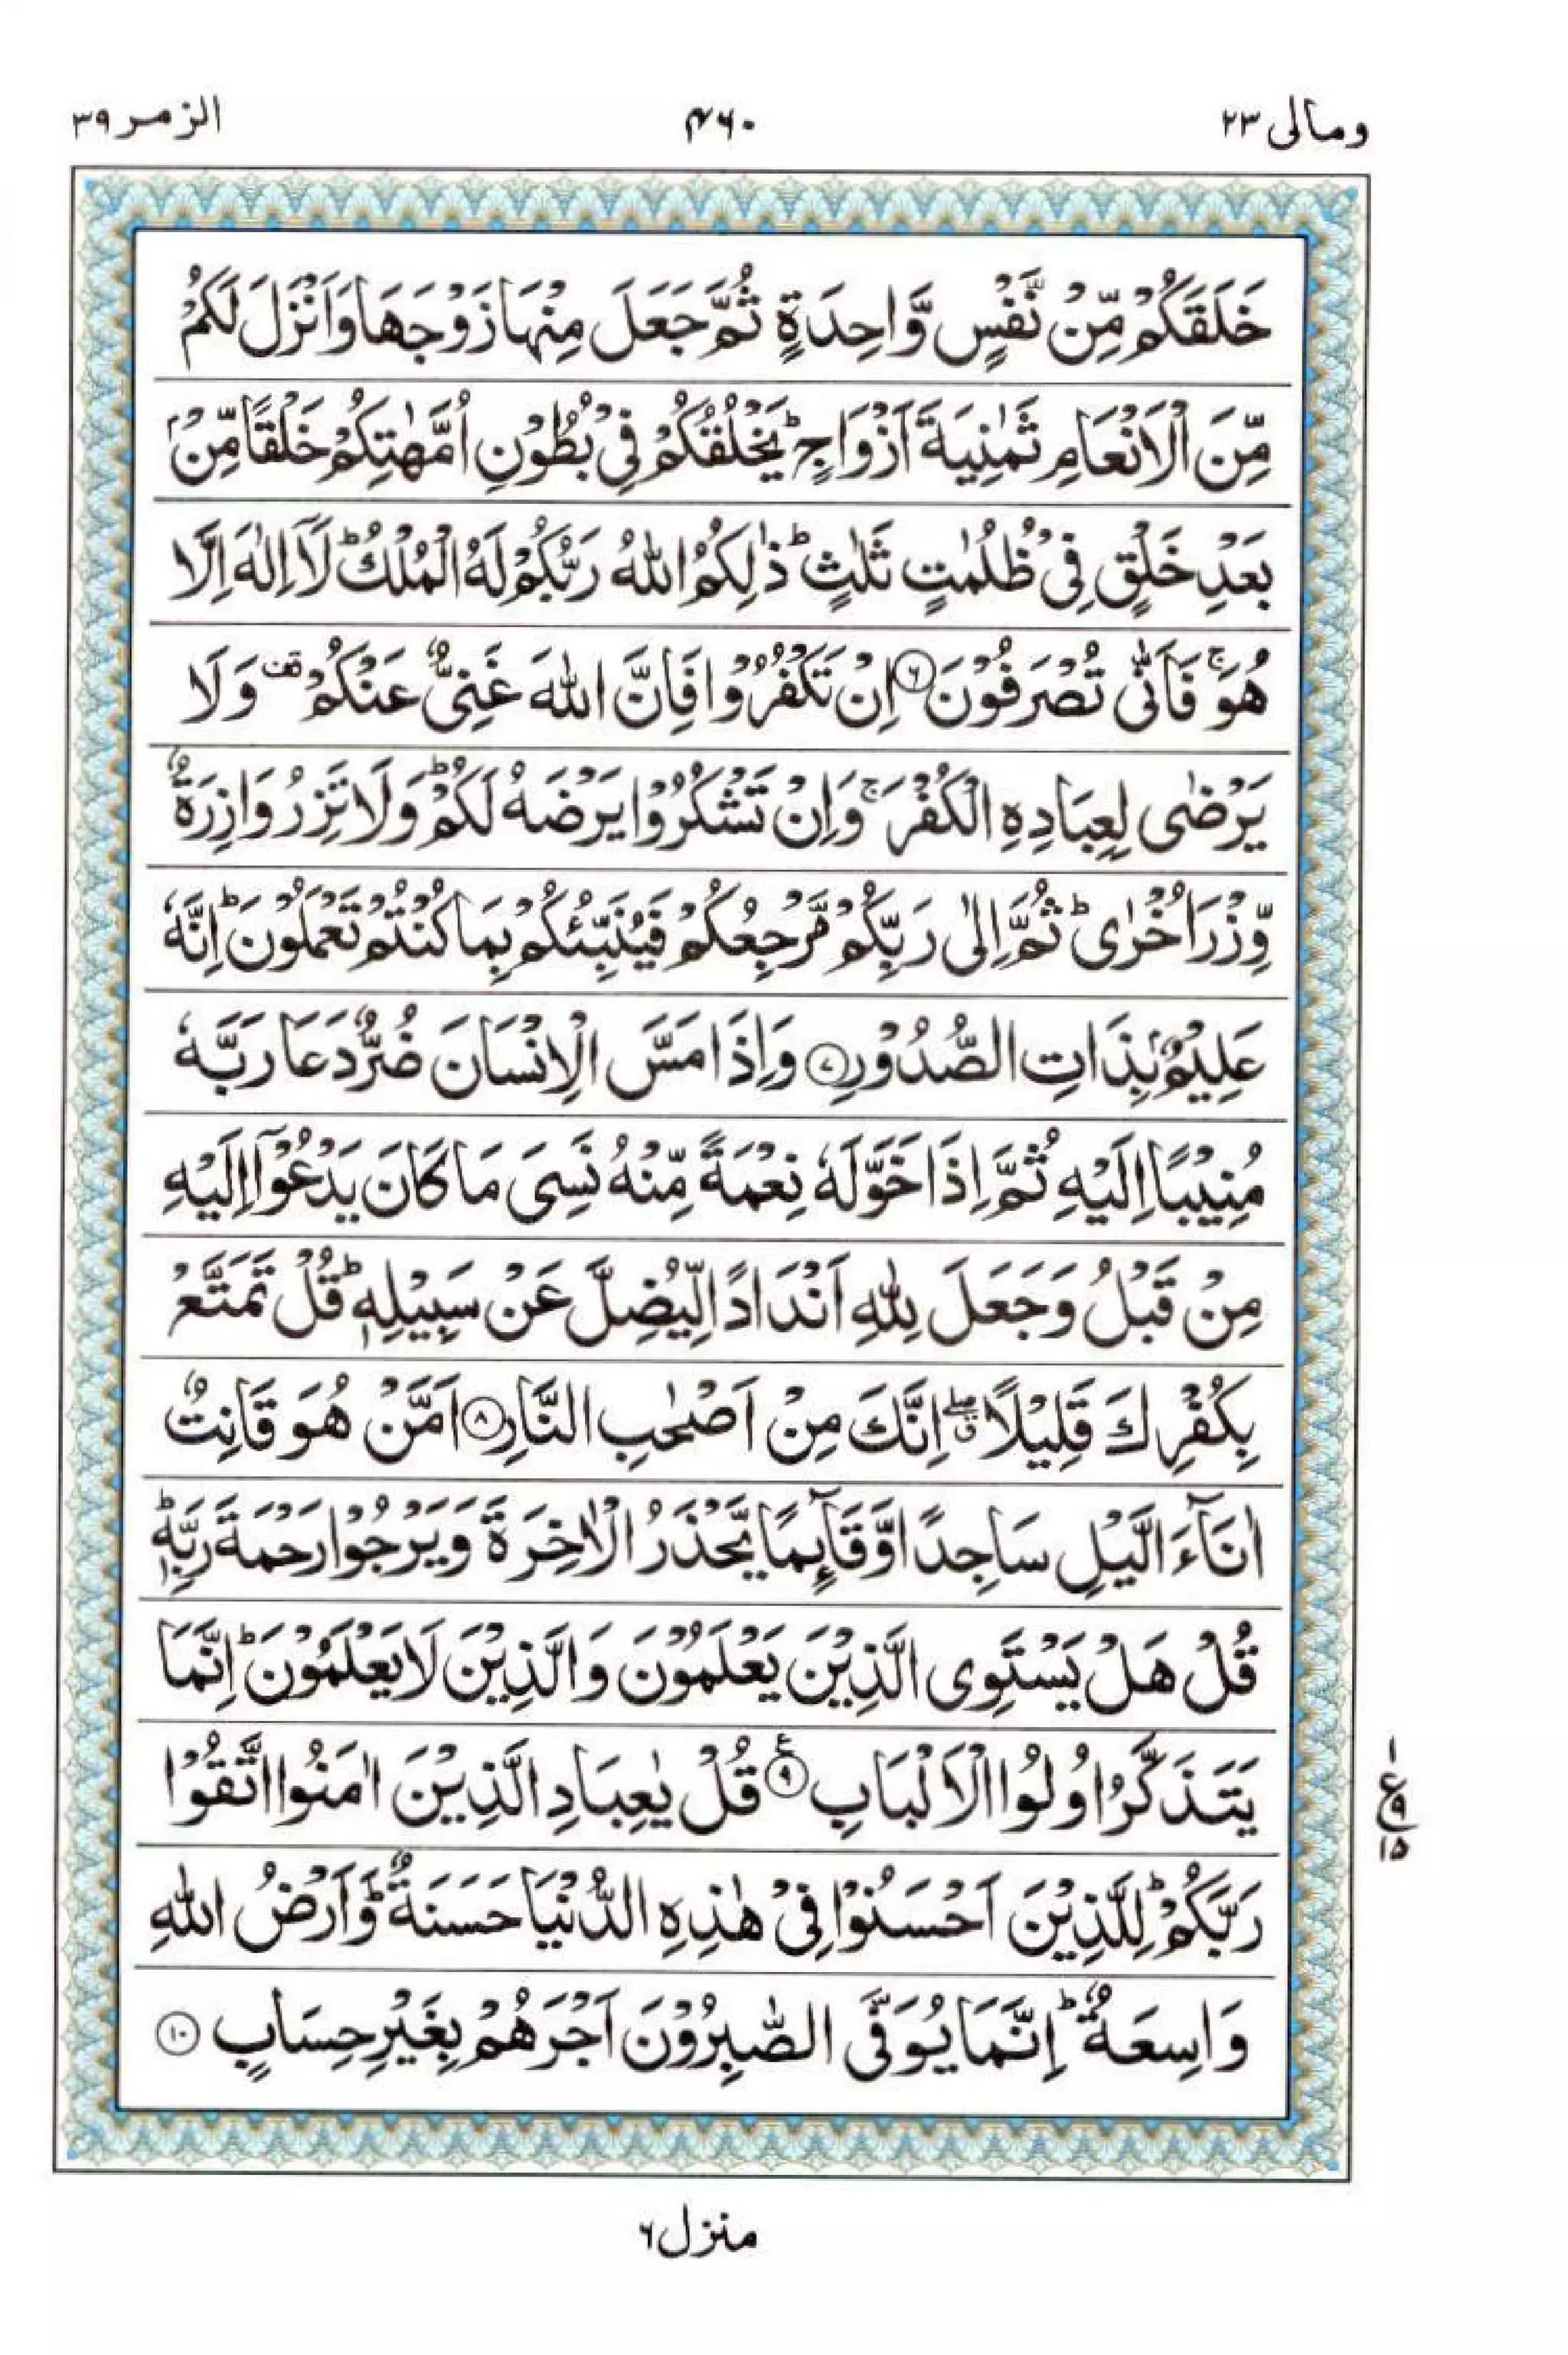 ومالی ۲۳
۴۶۰
الزمر ۳۹
خَلَقَكُمْ مِّنْ نَّفْسٍ وَّاحِدَةٍ ثُمَّ جَعَلَ مِنْهَا زَوْجَهَا وَاَنْزَلَ لَكُمْ
مِّنَ الْاَنْعَامِ ثَمٰنِيَةَ اَزْوَاجٍ ؕ يَخْلُقُكُمْ فِىْ بُطُوْنِ اُمَّهٰتِكُمْ خَلْقًا مِّنْۢ
بَعْدِ خَلْقٍ فِىْ ظُلُمٰتٍ ثَلٰثٍ ؕ ذٰلِكُمُ اللّٰهُ رَبُّكُمْ لَهُ الْمُلْكُ ؕ لَاۤ اِلٰهَ اِلَّا
هُوَ ۚ فَاَنّٰى تُصْرَفُوْنَ ۶ اِنْ تَكْفُرُوْا فَاِنَّ اللّٰهَ غَنِىٌّ عَنْكُمْ قف وَلَا
يَرْضٰى لِعِبَادِهِ الْكُفْرَ ۚ وَاِنْ تَشْكُرُوْا يَرْضَهُ لَكُمْ ؕ وَلَا تَزِرُ وَازِرَةٌ
وِّزْرَ اُخْرٰى ؕ ثُمَّ اِلٰى رَبِّكُمْ مَّرْجِعُكُمْ فَيُنَبِّئُكُمْ بِمَا كُنْتُمْ تَعْمَلُوْنَ ؕ اِنَّهٗ
عَلِيْمٌۢ بِذَاتِ الصُّدُوْرِ ۷ وَاِذَا مَسَّ الْاِنْسَانَ ضُرٌّ دَعَا رَبَّهٗ
مُنِيْبًا اِلَيْهِ ثُمَّ اِذَا خَوَّلَهٗ نِعْمَةً مِّنْهُ نَسِىَ مَا كَانَ يَدْعُوْۤا اِلَيْهِ
مِنْ قَبْلُ وَجَعَلَ لِلّٰهِ اَنْدَادًا لِّيُضِلَّ عَنْ سَبِيْلِهٖ ؕ قُلْ تَمَتَّعْ
بِكُفْرِكَ قَلِيْلًا ۖق اِنَّكَ مِنْ اَصْحٰبِ النَّارِ ۸ اَمَّنْ هُوَ قَانِتٌ
اٰنَآءَ الَّيْلِ سَاجِدًا وَّقَآئِمًا يَّحْذَرُ الْاٰخِرَةَ وَيَرْجُوْا رَحْمَةَ رَبِّهٖ ؕ
قُلْ هَلْ يَسْتَوِى الَّذِيْنَ يَعْلَمُوْنَ وَالَّذِيْنَ لَا يَعْلَمُوْنَ ؕ اِنَّمَا
يَتَذَكَّرُ اُولُوا الْاَلْبَابِ ۹ ع قُلْ يٰعِبَادِ الَّذِيْنَ اٰمَنُوا اتَّقُوْا
رَبَّكُمْ ؕ لِلَّذِيْنَ اَحْسَنُوْا فِىْ هٰذِهِ الدُّنْيَا حَسَنَةٌ ؕ وَاَرْضُ اللّٰهِ
وَاسِعَةٌ ؕ اِنَّمَا يُوَفَّى الصّٰبِرُوْنَ اَجْرَهُمْ بِغَيْرِ حِسَابٍ ۱۰
۱
ع ۹
۱۵
منزل ۶